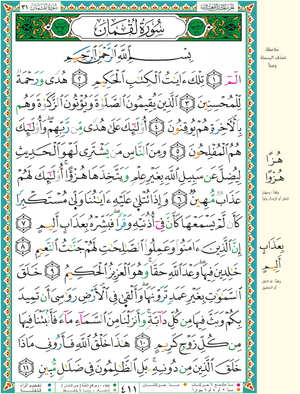 سُورَةُ لُقْمَانَ
بِسْمِ اللَّهِ الرَّحْمَٰنِ الرَّحِيمِ
الٓمٓ ١ تِلْكَ ءَايَٰتُ الْكِتَٰبِ الْحَكِيمِ ٢ هُدًى وَرَحْمَةً
لِّلْمُحْسِنِينَ ٣ الَّذِينَ يُقِيمُونَ الصَّلَوٰةَ وَيُؤْتُونَ الزَّكَوٰةَ وَهُم
بِالْءَاخِرَةِ هُمْ يُوقِنُونَ ٤ أُولَٰٓئِكَ عَلَىٰ هُدًى مِّن رَّبِّهِمْ وَأُولَٰٓئِكَ
هُمُ الْمُفْلِحُونَ ٥ وَمِنَ النَّاسِ مَن يَشْتَرِى لَهْوَ الْحَدِيثِ
لِيُضِلَّ عَن سَبِيلِ اللَّهِ بِغَيْرِ عِلْمٍ وَيَتَّخِذَهَا هُزُؤًا أُولَٰٓئِكَ لَهُمْ
عَذَابٌ مُّهِينٌ ٦ وَإِذَا تُتْلَىٰ عَلَيْهِ ءَايَٰتُنَا وَلَّىٰ مُسْتَكْبِرًا
كَأَن لَّمْ يَسْمَعْهَا كَأَنَّ فِىٓ أُذُنَيْهِ وَقْرًا فَبَشِّرْهُ بِعَذَابٍ أَلِيمٍ ٧
إِنَّ الَّذِينَ ءَامَنُوا وَعَمِلُوا الصَّٰلِحَٰتِ لَهُمْ جَنَّٰتُ النَّعِيمِ ٨
خَٰلِدِينَ فِيهَا وَعْدَ اللَّهِ حَقًّا وَهُوَ الْعَزِيزُ الْحَكِيمُ ٩ خَلَقَ
السَّمَٰوَٰتِ بِغَيْرِ عَمَدٍ تَرَوْنَهَا وَأَلْقَىٰ فِى الْأَرْضِ رَوَٰسِىَ أَن تَمِيدَ
بِكُمْ وَبَثَّ فِيهَا مِن كُلِّ دَآبَّةٍ وَأَنزَلْنَا مِنَ السَّمَآءِ مَآءً فَأَنۢبَتْنَا فِيهَا
مِن كُلِّ زَوْجٍ كَرِيمٍ ١٠ هَٰذَا خَلْقُ اللَّهِ فَأَرُونِى مَاذَا
خَلَقَ الَّذِينَ مِن دُونِهِ بَلِ الظَّٰلِمُونَ فِى ضَلَٰلٍ مُّبِينٍ ١١
٤١١
هُزُؤًا
بِعَذَابٍ
أَلِيمٍ